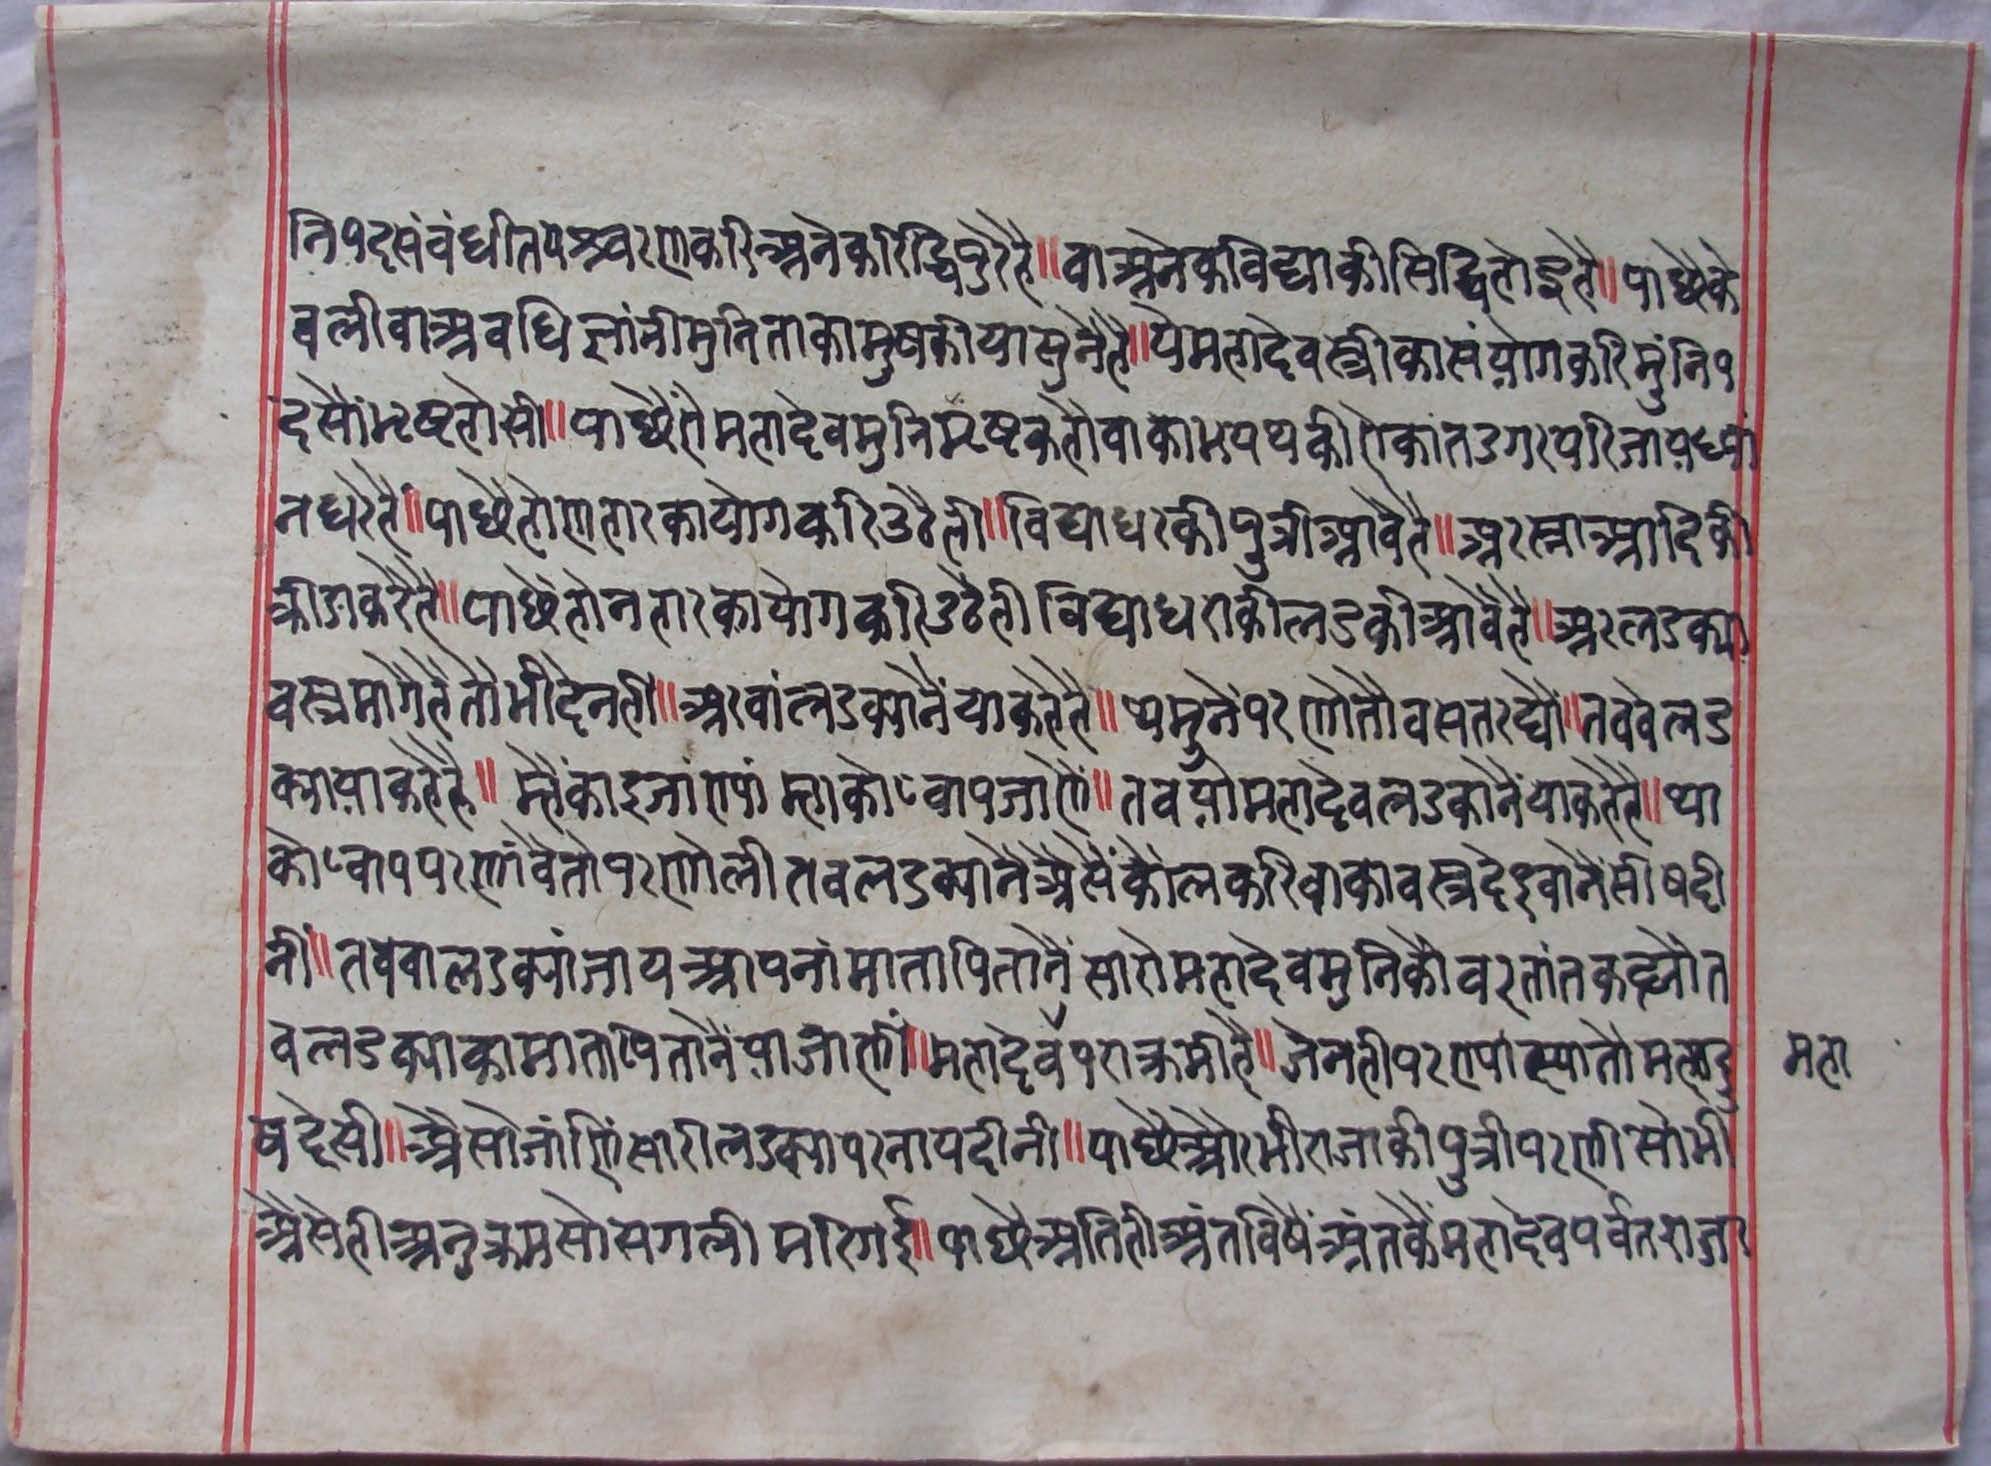 निपदसंवंधीतपश्चरणकरिअनेकरिद्धिफुरैहै॥वाअनेकविद्याकीसिद्धिहोइहै॥पाछैके
वलीवाअवधिज्ञांनीमुनिताकामुषकीयासुनैहै॥येमहादेवस्त्रीकासंयोगकरिमुंनिप
दसौंभ्रष्टहोसी॥पाछैहैमहादेवमुनिभ्रष्टकहौवाकामपथकीरोकांतडगरपरिजायध्यां
नधरैहै॥पाछैहोणहारकायोगकरिउठैही॥विद्याधरकीपुत्रीआवैहै॥अरस्नाआदिकी
क्रीडाकरैहै॥पाछैहोनहारकायोगकरिउठैहीविद्याधराकीलडकीआवैहै॥अरलडक्या
वस्त्रमागैहैतौभीदेनही॥अरवांलडक्यानैंयाकहैहै॥थेमुनेंपरणोतौवसतरद्यौं॥तववेलड
क्यायाकहैहै॥म्हैंकांइजांणां म्हाकोवापजाणैं॥तवयोमहादेवलडकोनैंयाकहैहै॥था
कोवापपरणांवैतोपरणोलीतवलडक्यानैअैसैंकौलकरिवाकावस्त्रदेइवानैंसीषदी
नीं॥तववालडक्यांजायआपनांमातापितानैंसारोमहादेवमुनिकौवरतांतकह्यौत
वलडक्याकामातापितानैंयाजाणीं॥महादेवपराक्रमीहै॥जेनहीपरणास्यातौमहादु महा
षदेसी॥अैसोजांणिंसारीलडक्यापरनायदीनी॥पाछैऔरभीराजाकीपुत्रीपरणीसोभी
अैसेहीअनुक्रमसोसगली मरिगई॥पाछैअतिहीअंतविषैंअंतकैंमहादेवपर्वतराजा